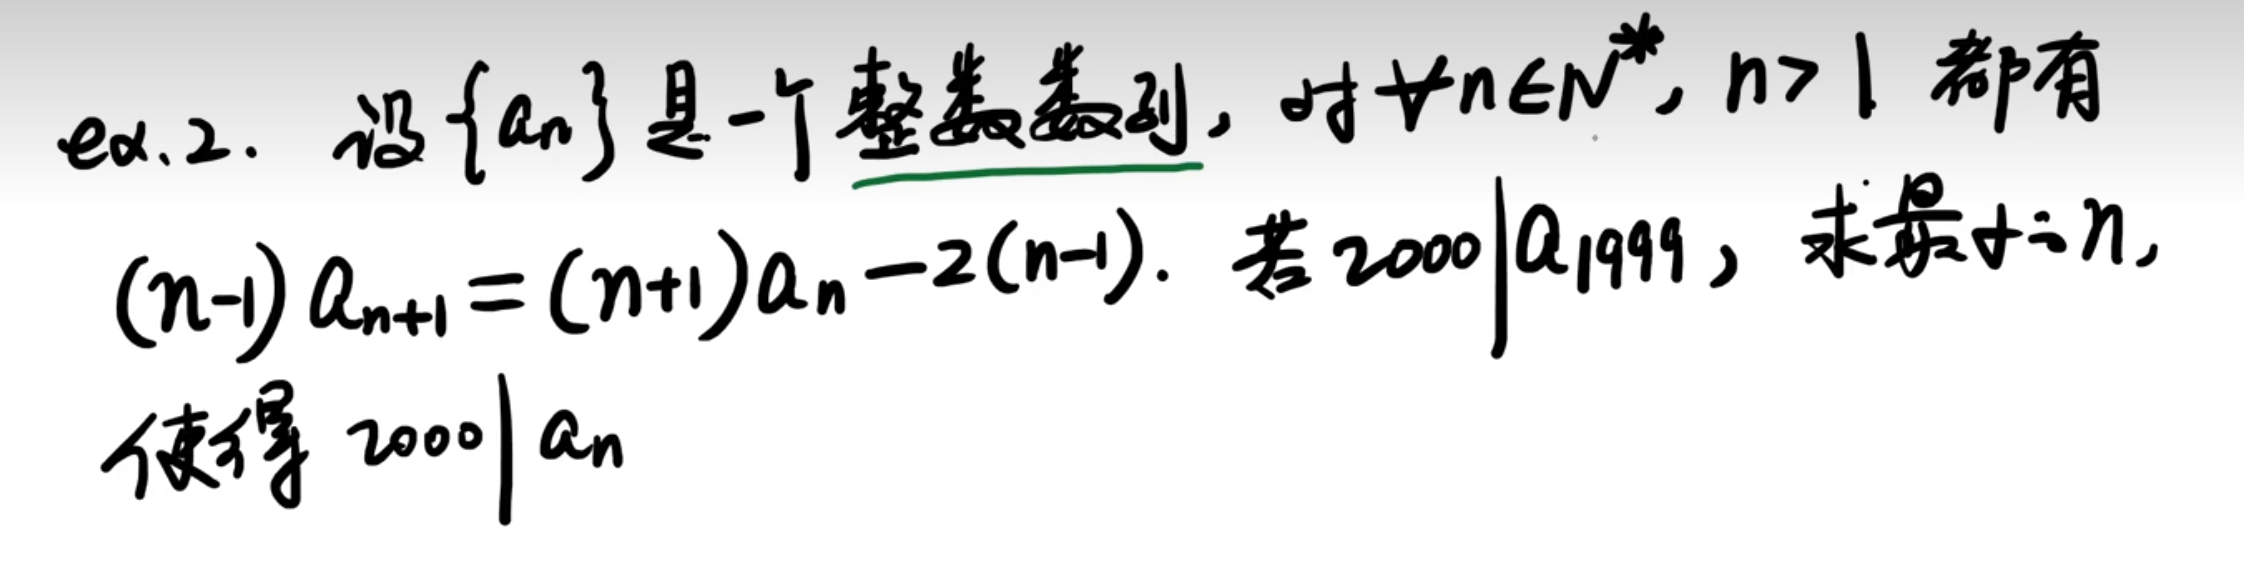 ex.2. 设{an}是一个整数数列, 对∀n∈N*, n>1 都有
(n-1)an+1=(n+1)an-2(n-1). 若2000|a1999, 求最小的n,
使得 2000|an